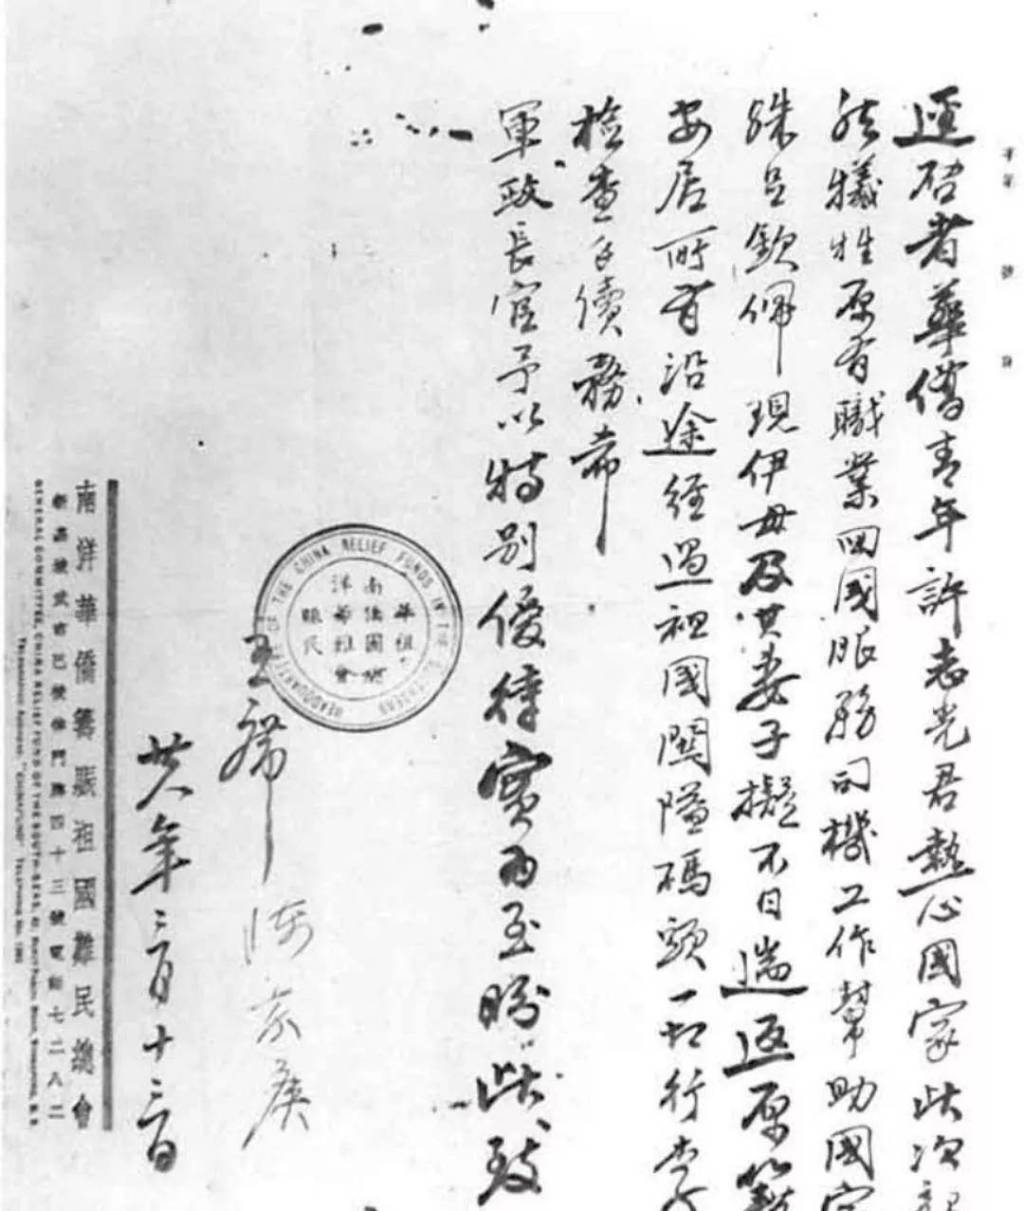 字第 號
逕啓者華僑青年許志光君熱心國家此次
然犧牲原有職業回國服務司機工作幫助國家
殊足欽佩現伊母及其妻子擬不日遄返原籍
安居所有沿途經過祖國關隘碼頭一切行李
檢查手續務希
軍政長官予以特別優待實為至盼此致
主席
陳嘉庚
廿八年三月十三日
HEADQUARTERS OF THE CHINA RELIEF FUNDS IN THE
南洋華僑籌賑祖國難民總會
新嘉坡武吉巴梳律門牌四十三號電話七二八二
GENERAL COMMITTEE, CHINA RELIEF FUND OF THE SOUTH-SEAS, 43, BUKIT PASOH ROAD, SINGAPORE, S. S.
TELEGRAPHIC ADDRESS: "CHINAFUND" TELEPHONE No.